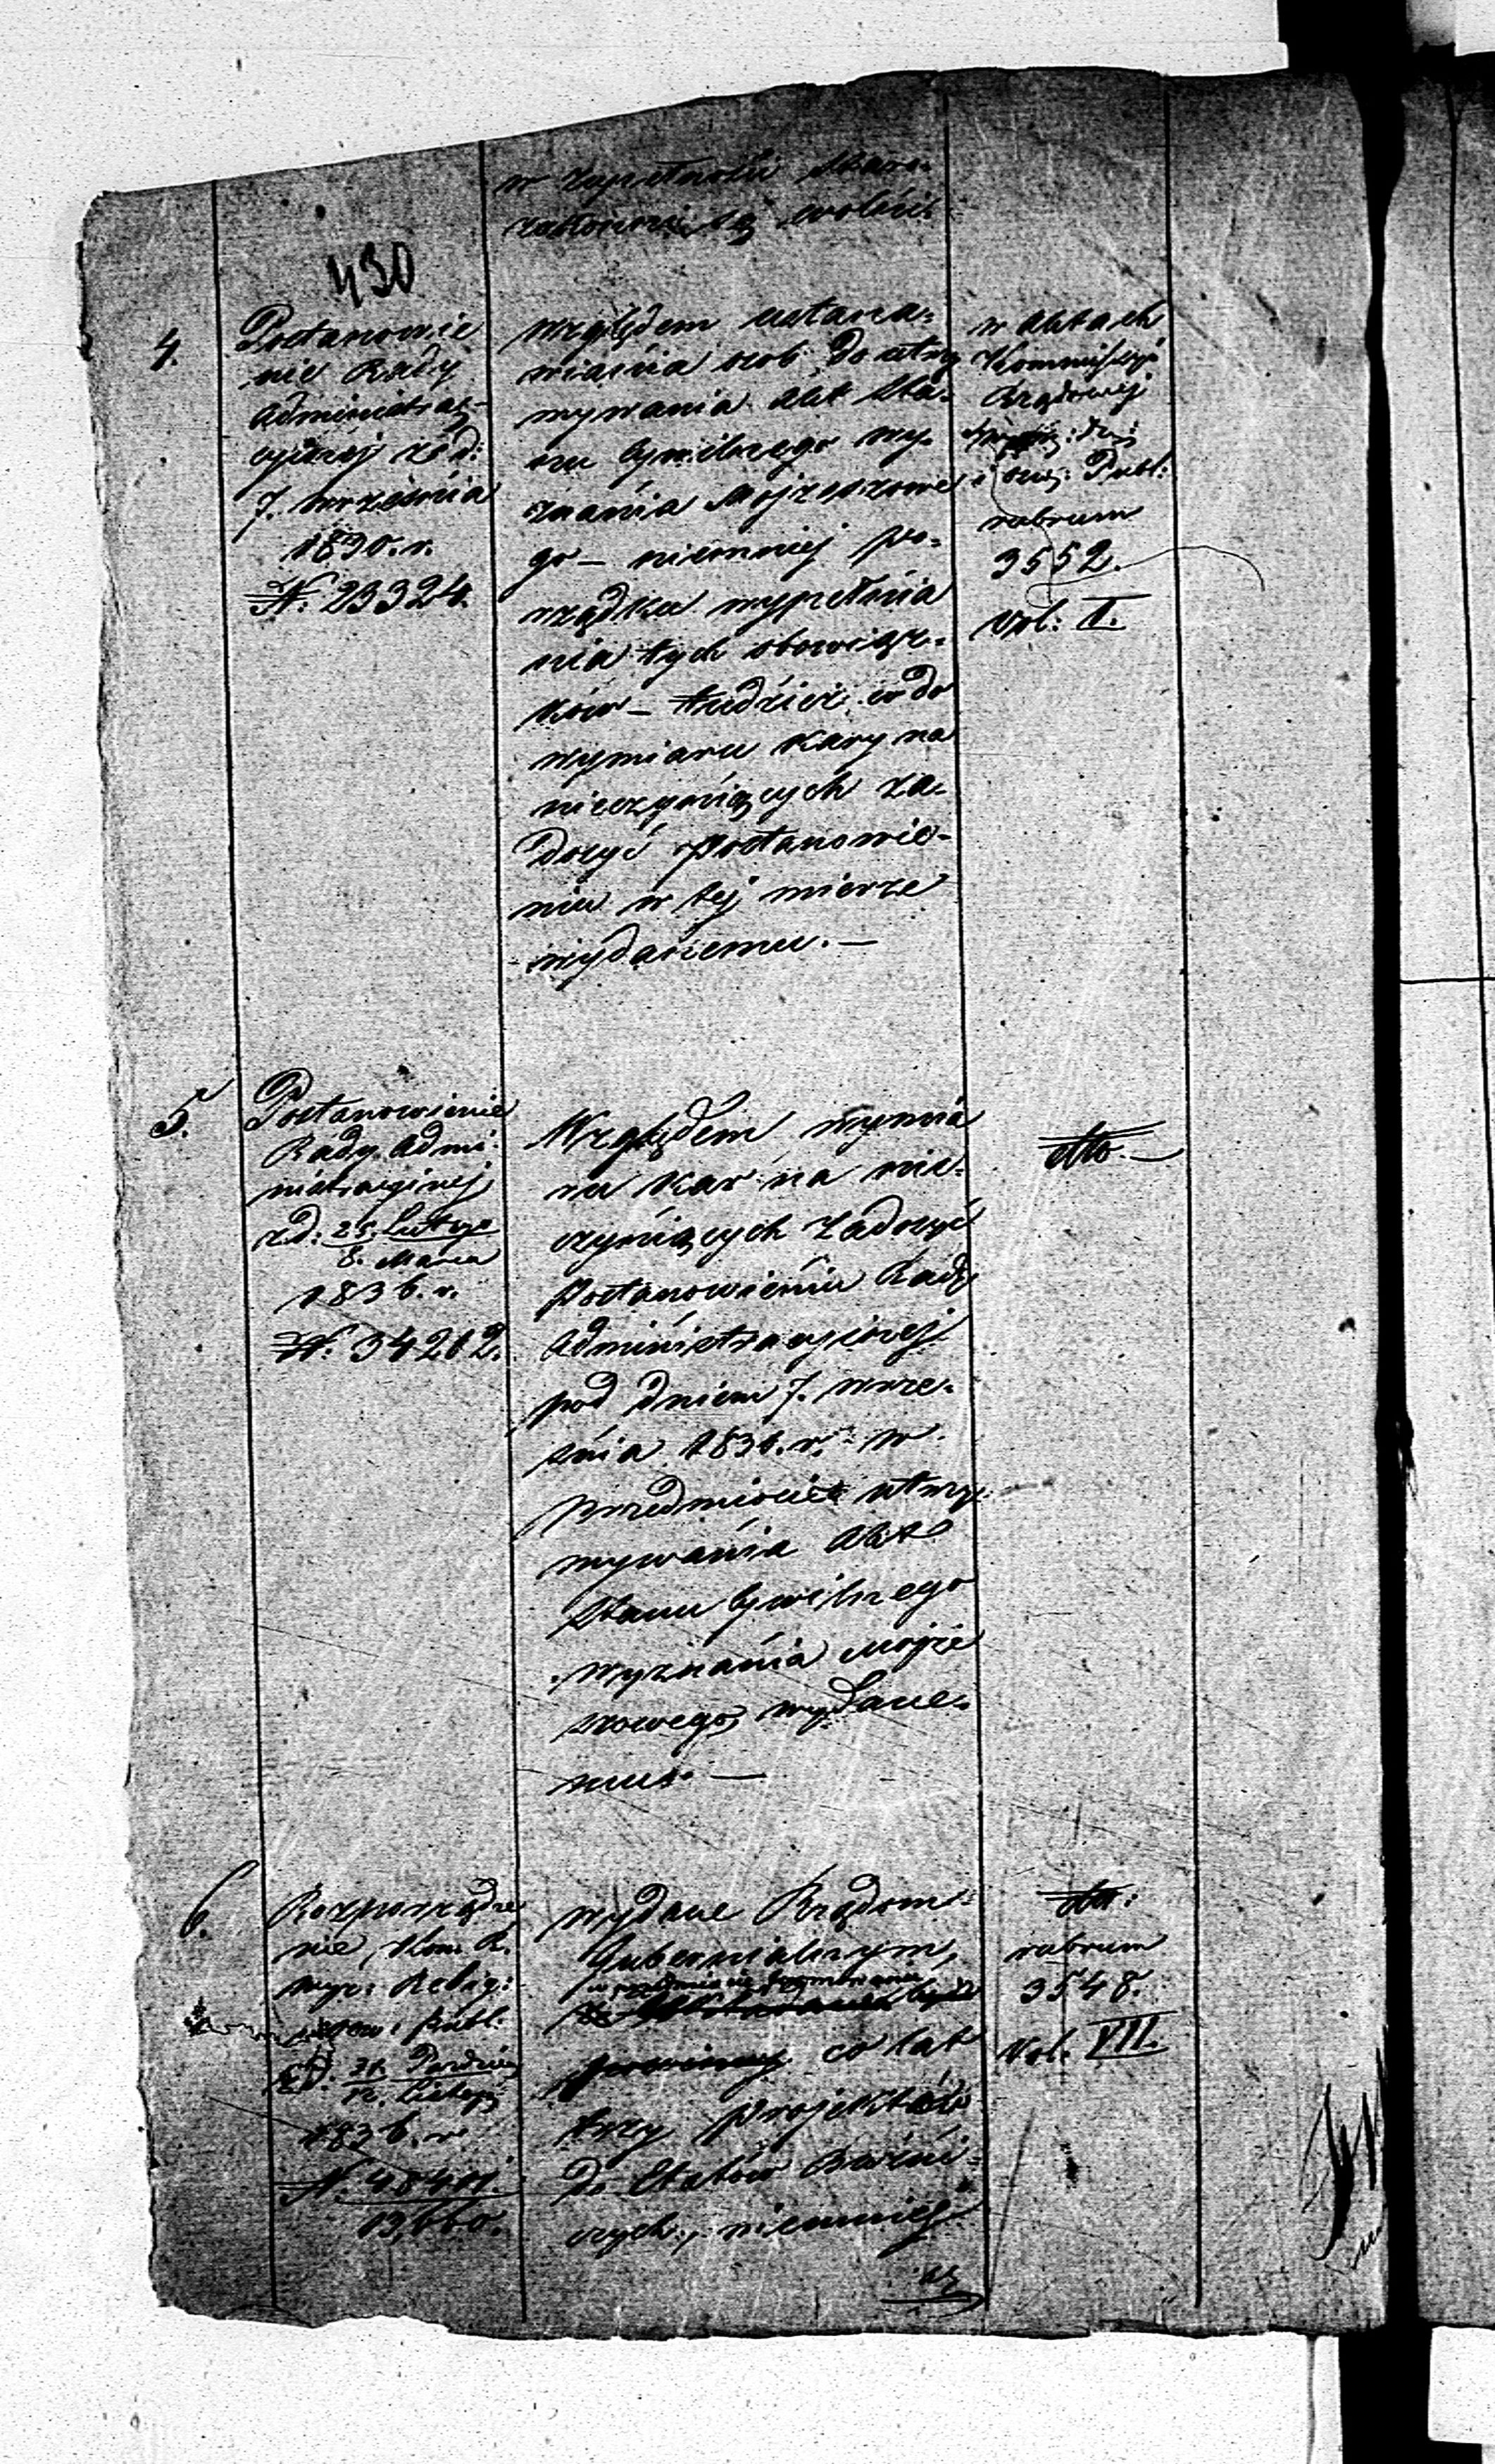 w zupełności Staro-
zakonni są wolni.
430
4.
Postanowie
nie Rady
Administrac-
cyjnej z d:
7. września
1830. r.
N. 23324.
względem ustana-
wiania osob do utrzy
mywania Akt Sta-
nu Cywilnego wy-
znania Mojżeszowe
go – niemniej po-
rządku wypełnia
nia tych obowiąz-
ków – tudzież co do
wymiaru kary na
nieczyniących za-
dosyć postanowie-
niu w tej mierze
wydanemu. —
w Aktach
Kommissyi
Rządowej
i Oświ: Publ:
rubrum
3552.
Vol: I.
5.
Postanowienie
Rady Admi-
nistracyjnej
z d: 25. Lutego
8. Marca
1836. r.
N. 34212.
Względem wymia
ru kar na nie-
czyniących zadosyć
Postanowieniu Rady
Administracyjnej
pod dniem 7. wrze-
śnia 1830. r. w
przedmiocie utrzy-
mywania Akt
Stanu Cywilnego
wyznania Mojże
szowego, wydane-
mu. —
dtto. —
6.
Rozporządze
nie Kom. R.
wyz: Relig:
i Ośw: Publ:
z d. 31. Paździer
12. Listop:
1836. r.
N. 48401.
13,660.
wydane Rządom
Gubernialnym,
w przedmiocie
co lat
trzy projektów
do Etatów Bożni-
czych, niemniej
dtto:
rubrum
3548.
Vol: VII.